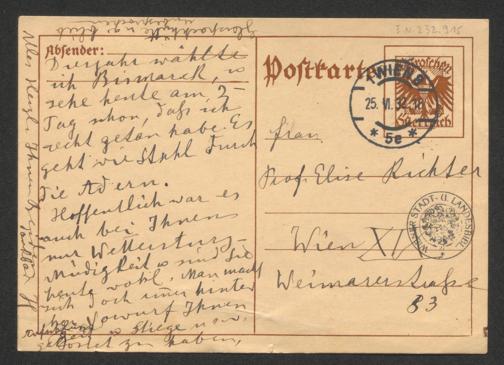 I.N. 232.915
Absender:
Postkarte
Groschen
Österreich
WIEN 9
25. VI. 32. 18
* 5e *
Dieses Jahr wählte
ich Bismarck, u
sehe heute am 2-
Tag schon, daß ich
recht getan habe. Es
geht wie Stahl durch
die Adern.
Hoffentlich war es
auch bei Ihnen
nur Wettersturz-
Müdigkeit u sind Sie
heute wohl. Man macht
sich doch immer hinter
her Vorwurf Ihnen
Stiege usw.
gekostet zu haben,
Frau
Prof. Elise Richter
Wien XIX
Weimarerstraße
83
WIENER STADT- U. LANDESBIBL.
Alles Herzl.